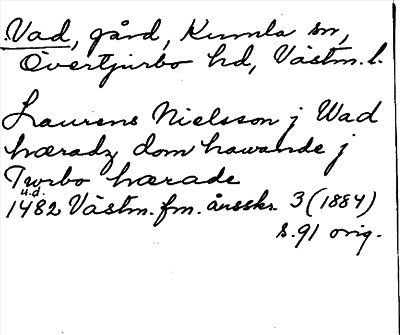 Vad, gård, Kumla sn,
Övertjurbo hd, Västm. l.
Laurens Nielsson j Wad
hæradz dom hawande j
Twrbo hærade
u.d.
1482 Västm. fm. årsskr. 3 (1884)
s. 91 orig.